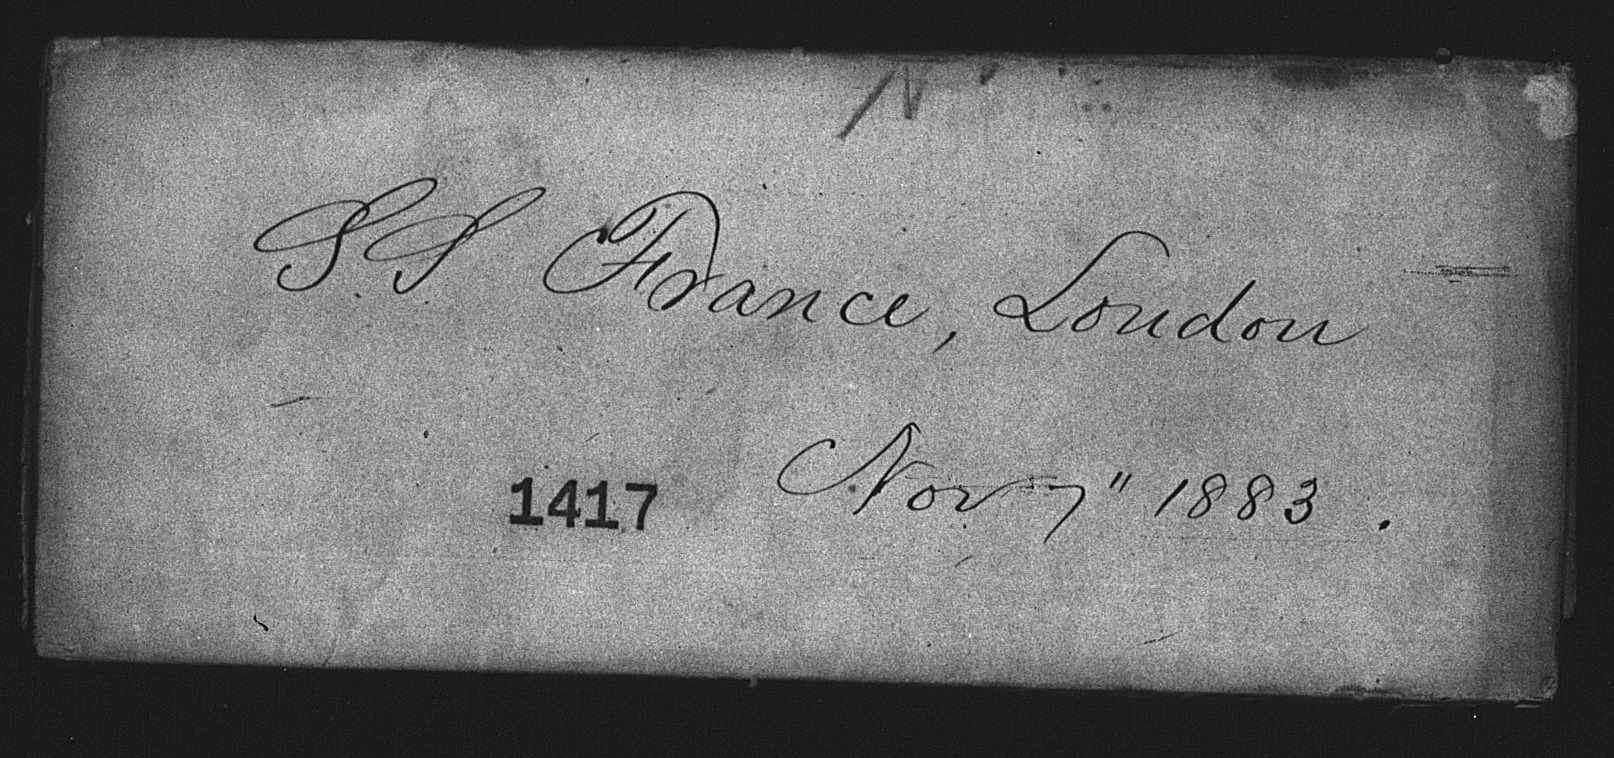 SS France, London
Nov 7" 1883.
1417